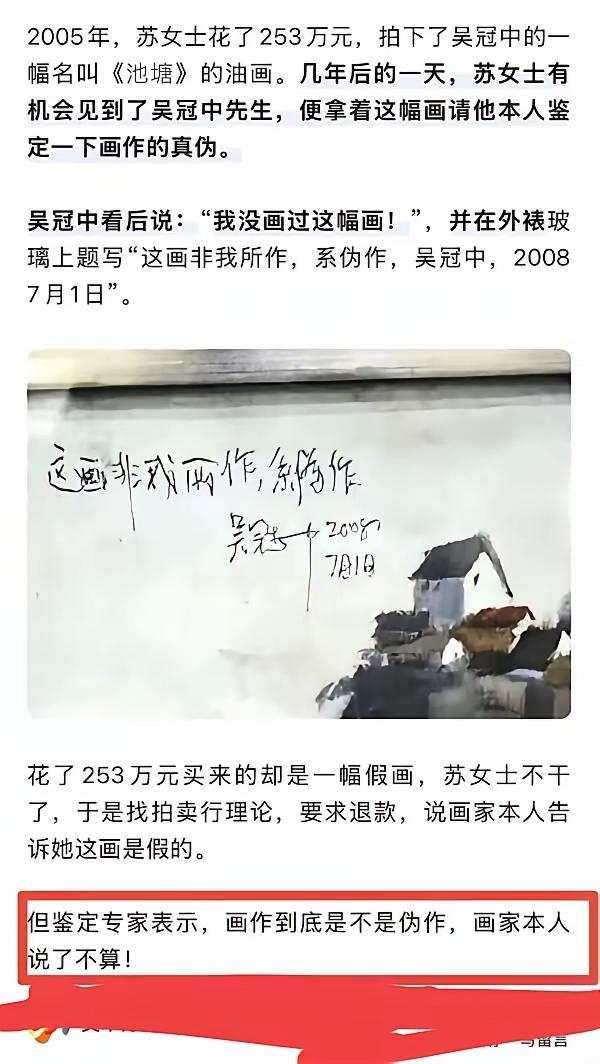 2005年，苏女士花了253万元，拍下了吴冠中的一
幅名叫《池塘》的油画。几年后的一天，苏女士有
机会见到了吴冠中先生，便拿着这幅画请他本人鉴
定一下画作的真伪。
吴冠中看后说：“我没画过这幅画！”，并在外裱玻
璃上题写“这画非我所作，系伪作，吴冠中，2008
7月1日”。
这画非我所作，系伪作
吴冠中 2008
7月1日
花了253万元买来的却是一幅假画，苏女士不干
了，于是找拍卖行理论，要求退款，说画家本人告
诉她这画是假的。
但鉴定专家表示，画作到底是不是伪作，画家本人
说了不算！
写留言